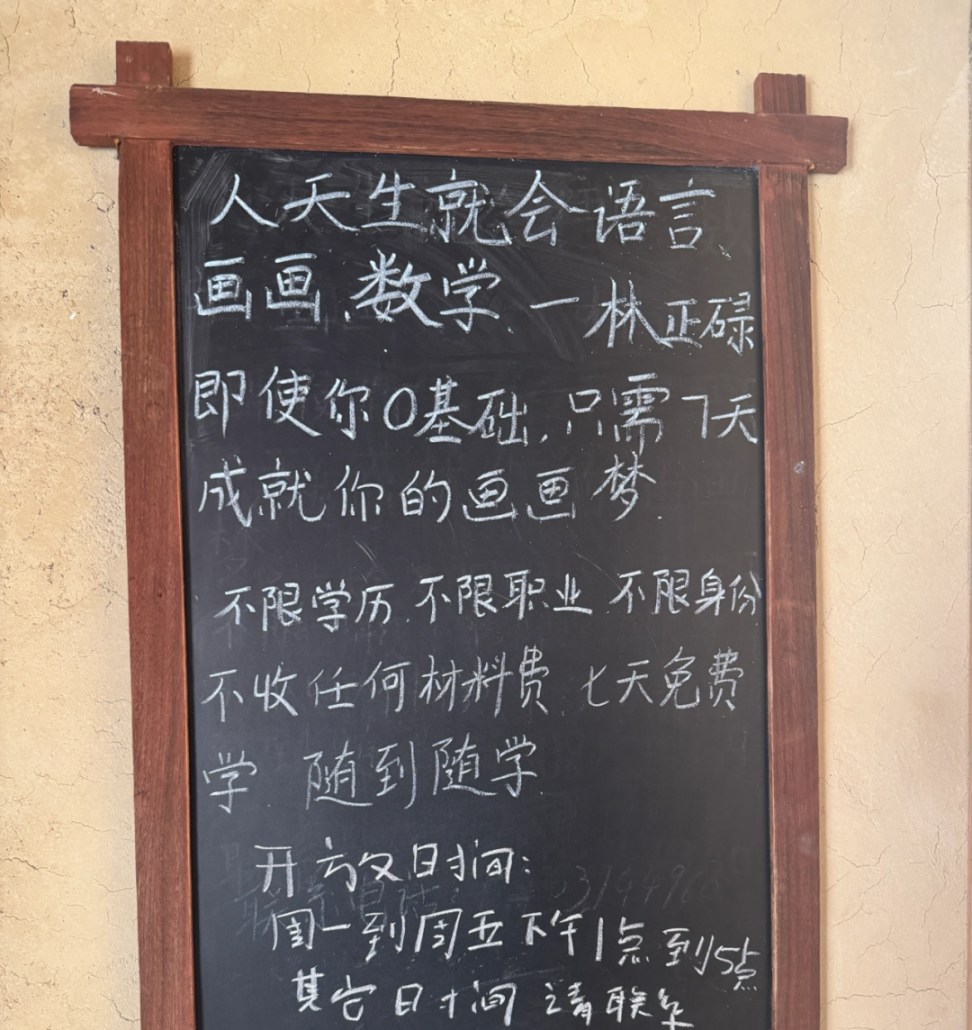 人天生就会语言
画画、数学、一林正碌
即使你0基础,只需7天
成就你的画画梦.
不限学历.不限职业 不限身份
不收任何材料费.七天免费
学 随到随学.
开放时间:
周一到周五下午1点到5点
其它时间 请联系